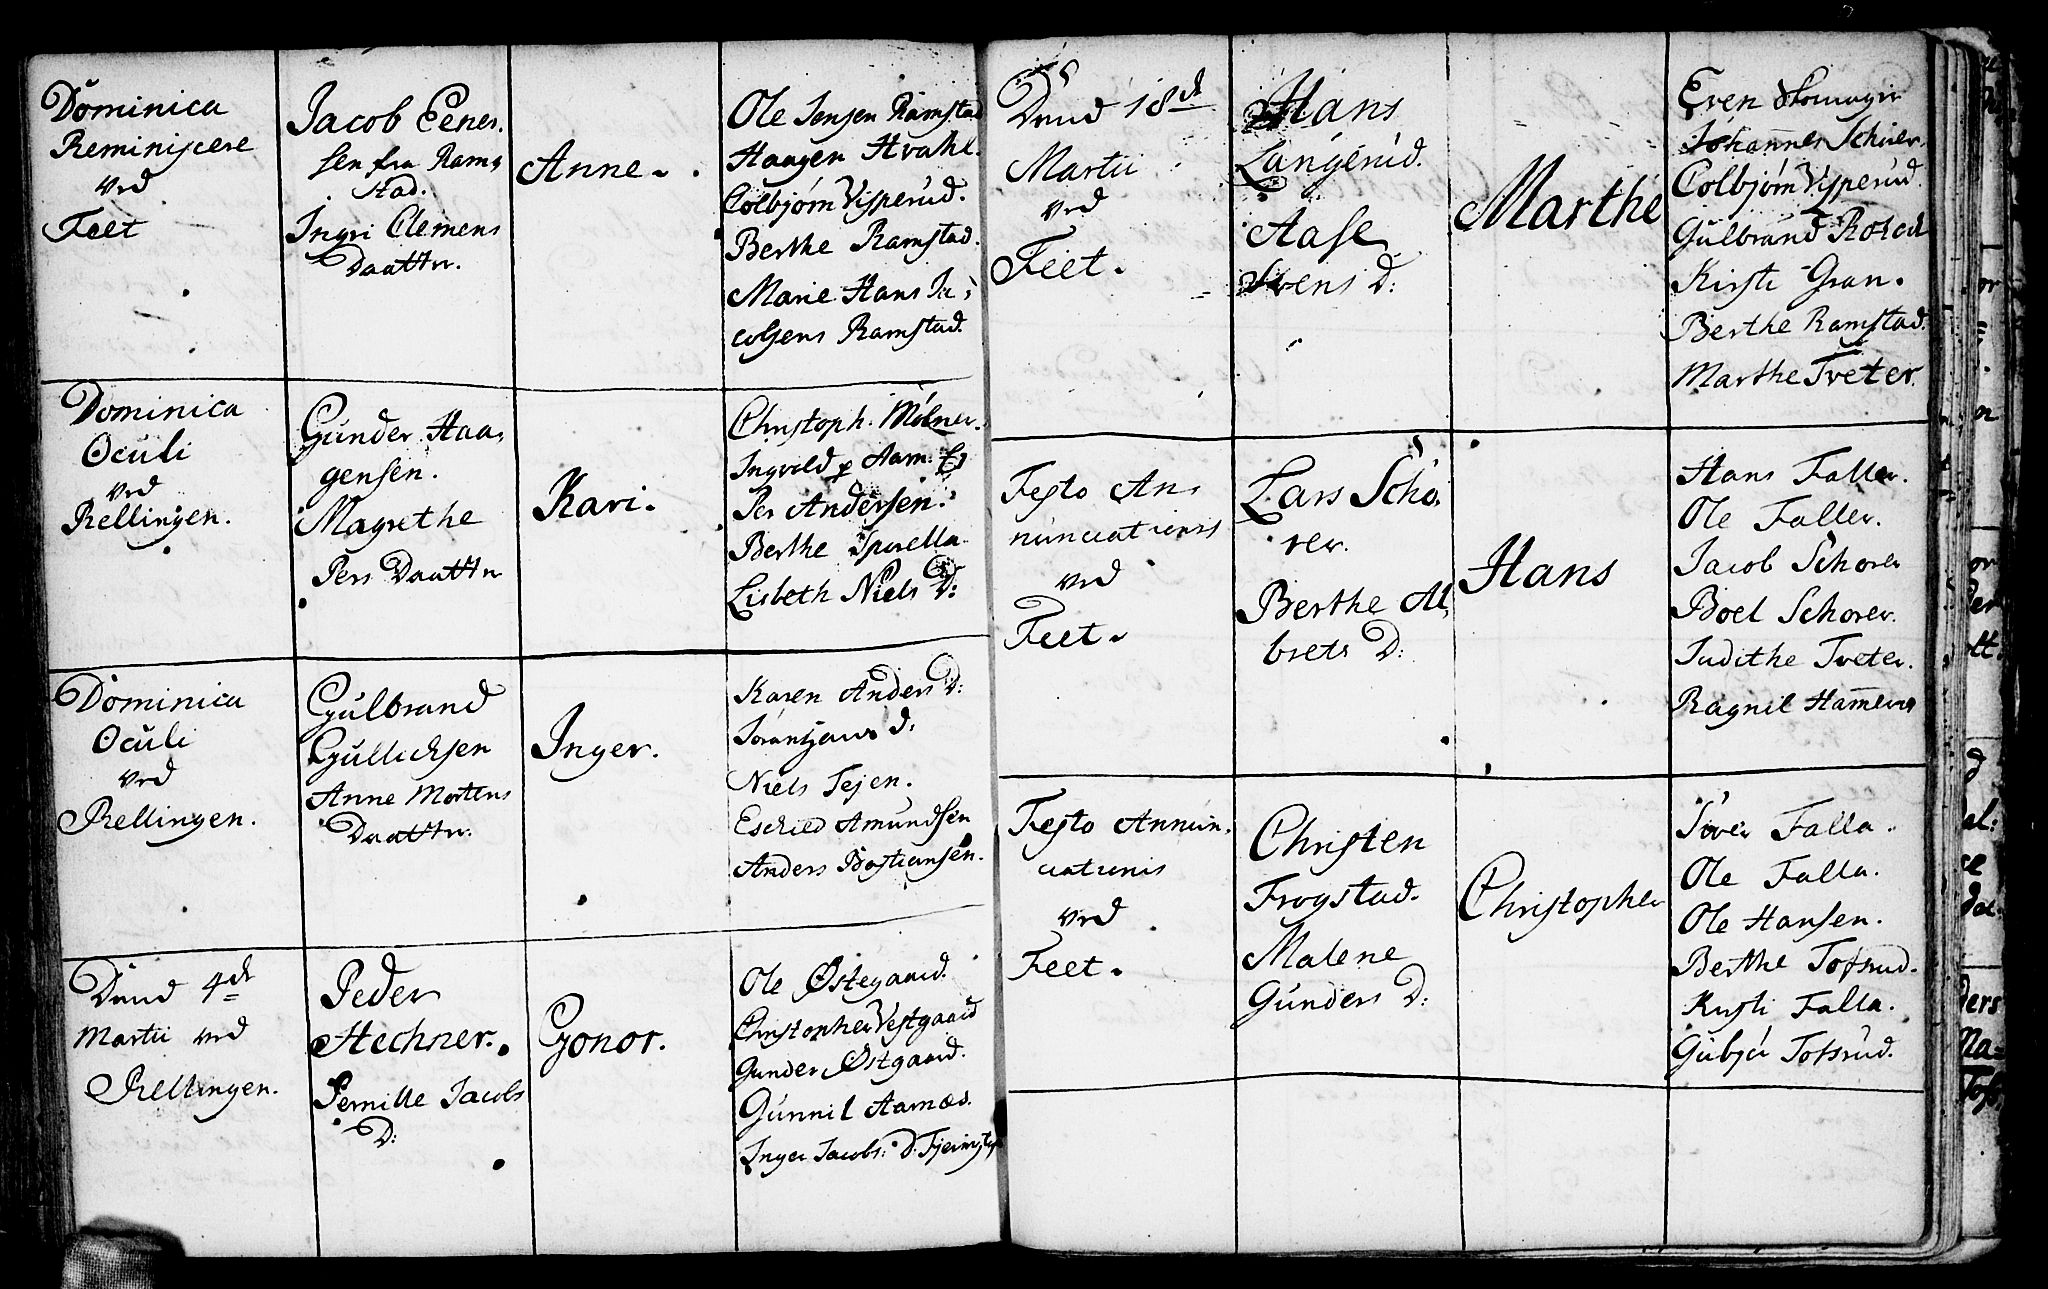 Dominica
Reminiscere
ved
Feet
Jacob Eener,
sen fra Ram,
stad.
Ingri Clemens
Daatter.
Anne.
Ole Jensen Ramstad
Haagen Hvahl.
Colbjørn Visperud.
Berthe Ramstad.
Marie Hans Ja,
cobsens Ramstad.
Dominica
Oculi
ved
Rellingen.
Gunder Haa,
gensen.
Magrethe
Pers Daatter
Kari.
Christoph. Mölner.
Ingvold
Per Andersen.
Berthe Sparella
Lisbeth Niels D:
Dominica
Oculi
ved
Rellingen.
Gulbrand
Gullichsen
Anne Mortens
Daatter.
Inger.
Karen Anders D:
D:
Niels Tejen.
Eschild Amundsen
Anders Bastiansen.
Dnud 4de
Martii ved
Rellingen.
Peder
Hechner.
Pernille Jacobs
D:
Gonor.
Ole Østegaard.
Christopher Vestgaard
Gunder Østgaard.
Gunnil Aarnæs.
Inger Jacobs: D:
Dnud 18de
Martii
ved
Feet.
Hans
Langerud.
Aase
Svens D:
Marthe
Even Skomager
Johannes Schier.
Colbjørn Visperud.
Gulbrand
Kirsti Gran.
Berthe Ramstad.
Marthe Tveter.
Festo An,
nunciationis
ved
Feet.
Lars Scho,
rer.
Berthe Al,
brets D:
Hans
Hans Faller.
Ole Faller.
Jacob Schorer
Boel Schorer.
Judithe Tveter.
Ragnil Hameren
Festo Annun,
ciationis
ved
Feet.
Christen
Frogstad.
Malene
Gunders D:
Christopher
Iver Falla.
Ole Falla.
Ole Hansen.
Berthe Tofsrud.
Kirsti Falla.
Gubjør Tofsrud.